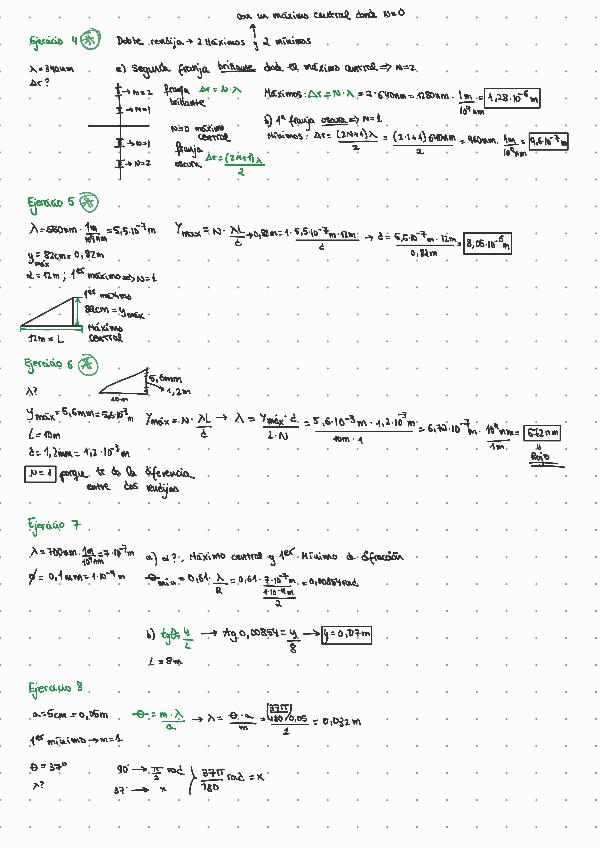 con un máximo central donde N=0
Ejercicio 4 Doble rendija → 2 Máximos y 2 mínimos
λ=340nm
Δr?
a) Segunda franja brillante desde el máximo central ⇒ N=2
→ N=2 franja brillante Δr=N·λ
→ N=1
N=0 máximo central
→ N=1 franja oscura Δr=(2N+1)λ/2
→ N=2
Máximos: Δr=N·λ=2·640nm=1280nm·1m/10⁹nm=1,28·10⁻⁶m
b) 1ª franja oscura ⇒ N=1
Mínimos: Δr=(2N+1)λ/2=(2·1+1)640nm/2=960nm·1m/10⁹nm=9,6·10⁻⁷m
Ejercicio 5
λ=550nm·1m/10⁹nm=5,5·10⁻⁷m
Ymax=N·λL/d→0,82m=1·5,5·10⁻⁷m·12m/d → d=5,5·10⁻⁷m·12m/0,82m=8,05·10⁻⁶m
y máx=82cm=0,82m
d=12m; 1er máximo⇒N=1
1er máximo
82cm=ymáx
Máximo central
12m=L
Ejercicio 6
λ?
5,6mm
1,2m
10m
Ymáx=5,6mm=5,6·10⁻³m
L=10m
d=1,2mm=1,2·10⁻³m
Ymáx=N·λL/d → λ=Ymáx·d/L·N=5,6·10⁻³m·1,2·10⁻³m/10m·1=6,72·10⁻⁷m·10⁹nm/1m=672nm
Rojo
N=1 porque te da la diferencia
entre dos rendijas
Ejercicio 7
λ=700nm·1m/10⁹nm=7·10⁻⁷m
a) α?, Máximo central y 1er Mínimo de difracción
φ=0,1mm=1·10⁻⁴m
θmin=0,61·λ/R=0,61·7·10⁻⁷m/(1·10⁻⁴m/2)=0,00854rad
b) tgθ=y/L → tg0,00854=y/8 → y=0,07m
L=8m
Ejercicio 8
a=5cm=0,05m
θ=m·λ/a → λ=θ·a/m=(37π/180)0,05/1=0,032m
1er mínimo→m=1
θ=37º
λ?
90° → π/2 rad
37° → x
37π/180 rad=x